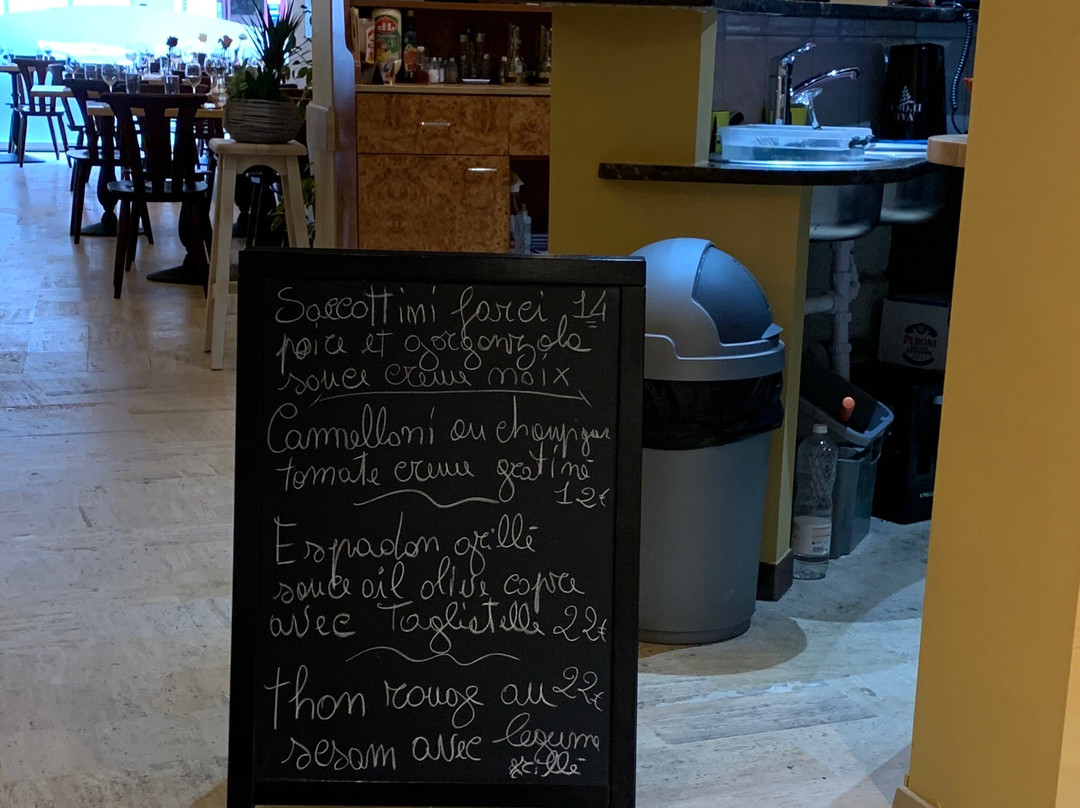 Saccottini farci 14
poire et gorgonzola
sauce creme noix
Cannelloni au champignon
tomate creme gratiné
12€
Espadon grillé
sauce ail olive capre
avec Tagliatelle 22€
thon rouge au 22€
sesam avec legume
grillé
PERONI